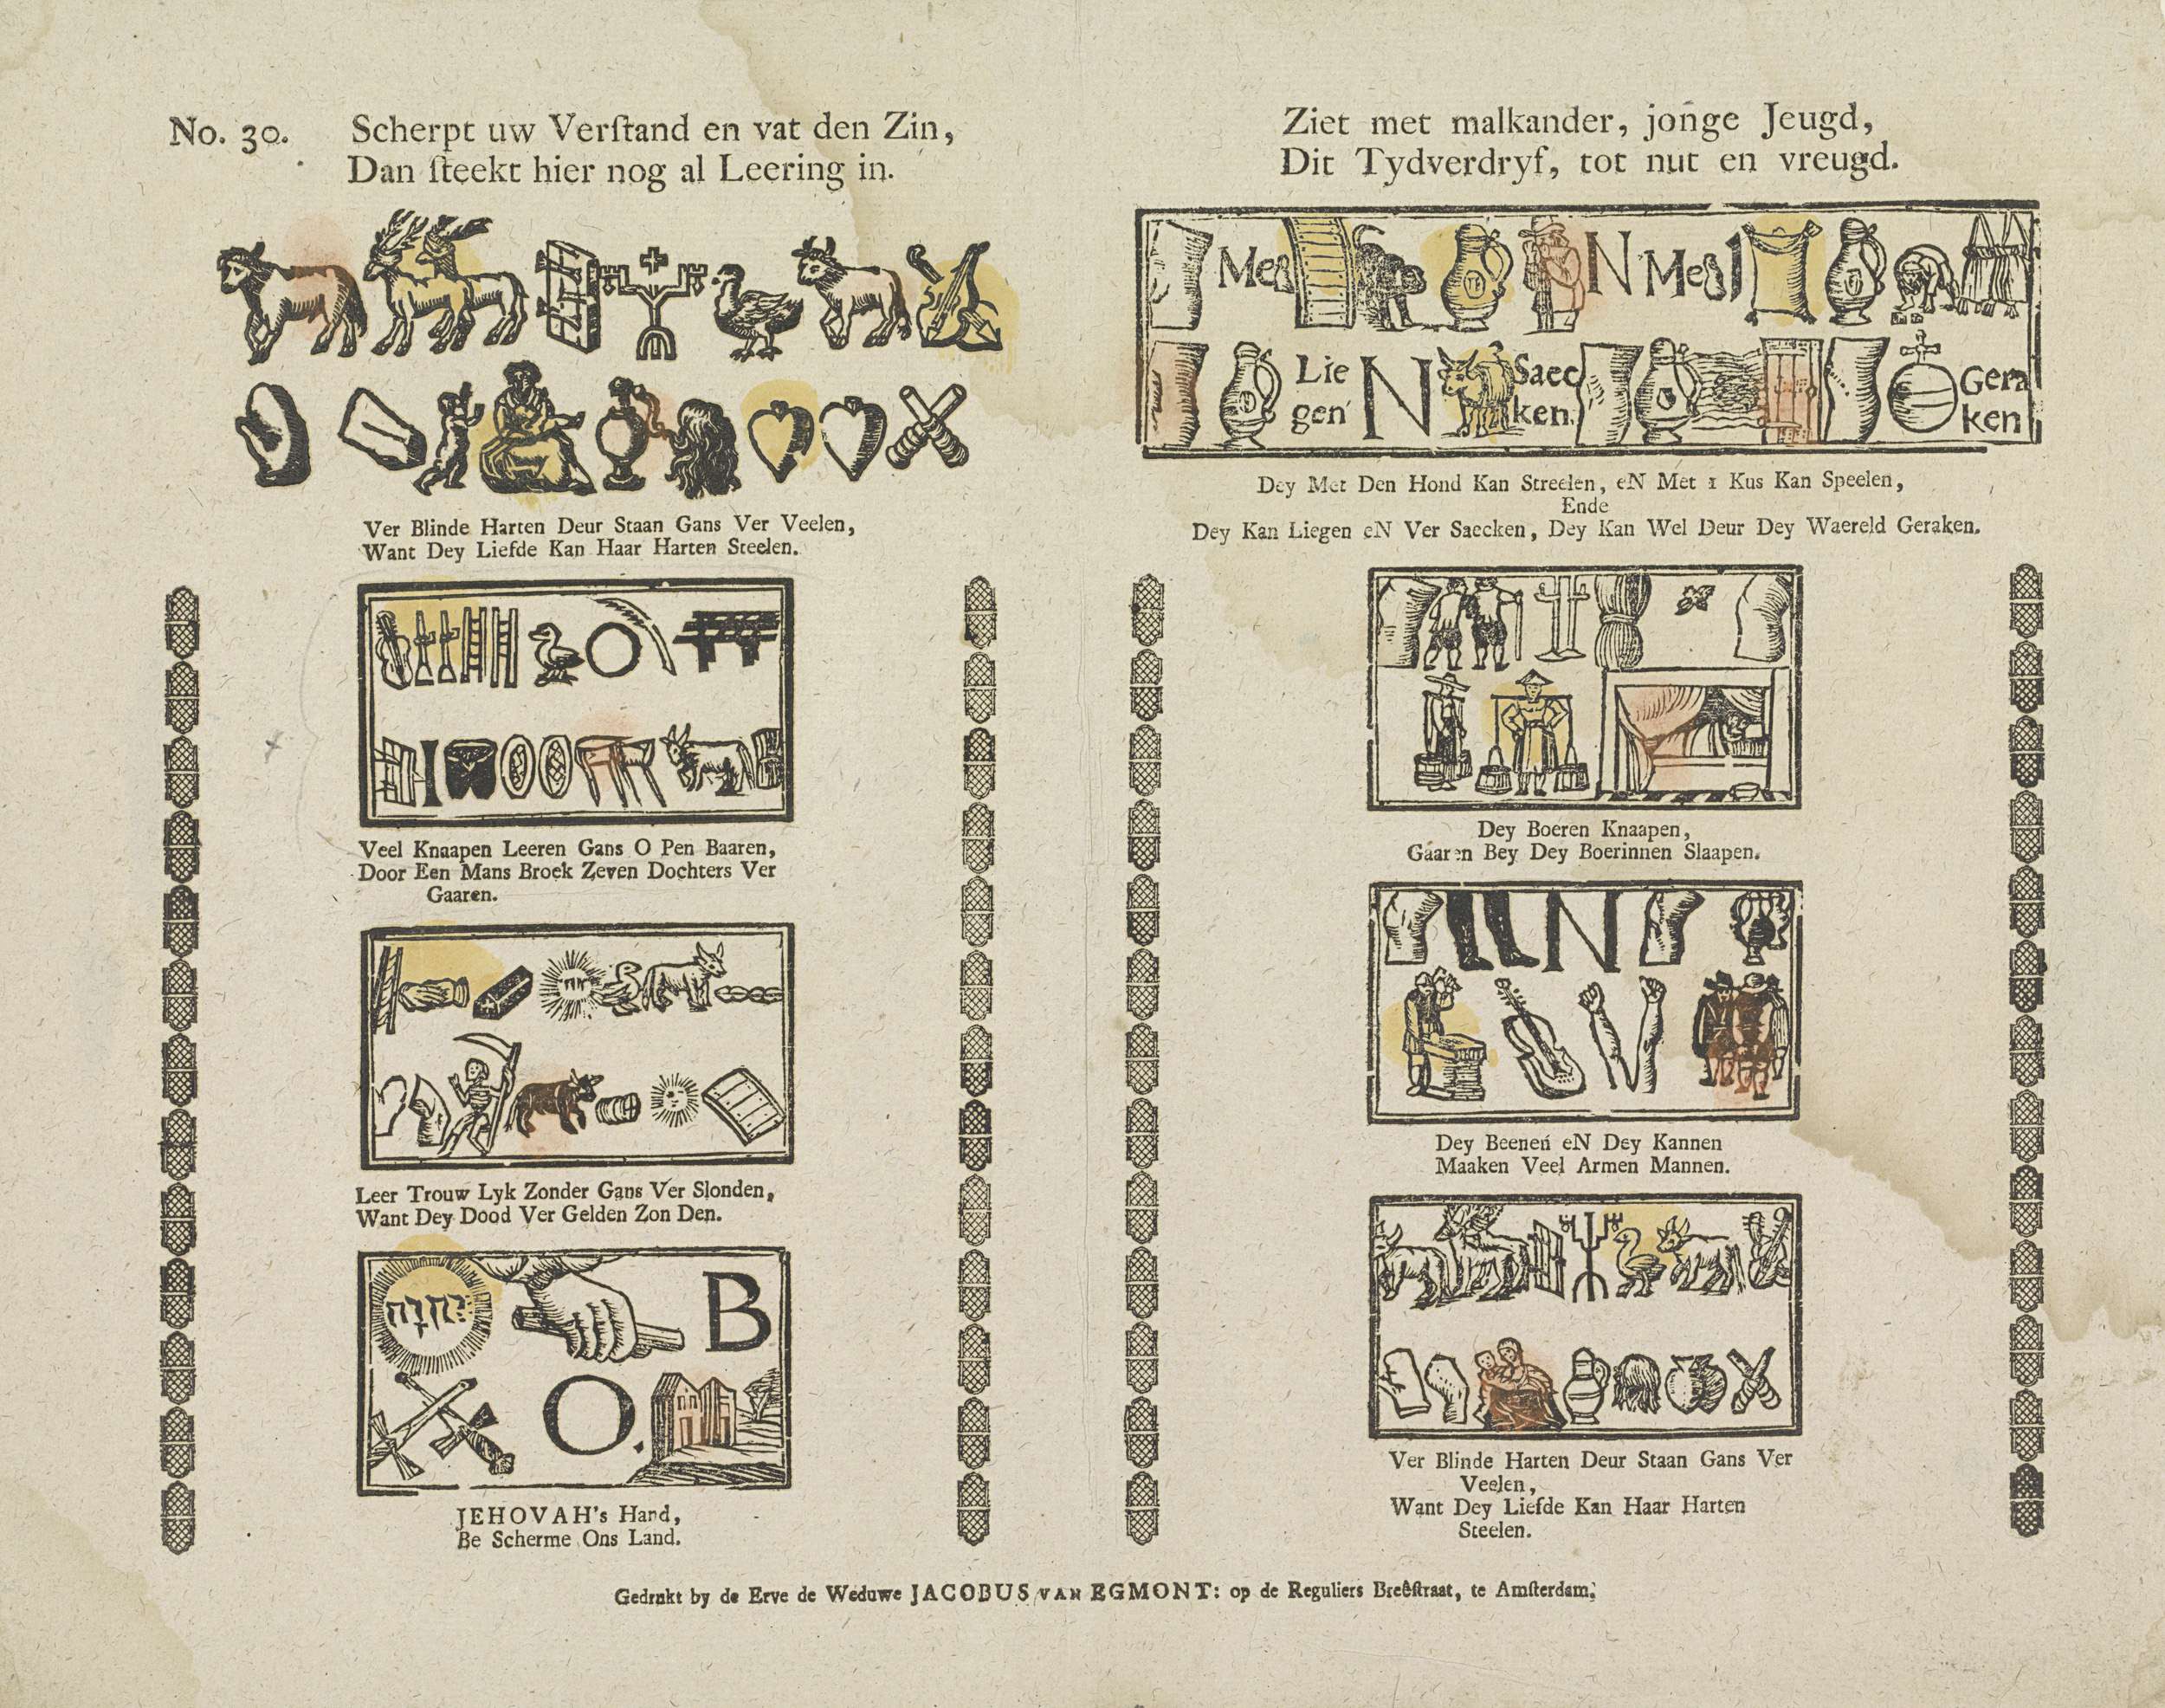 No. 30.
Scherpt uw Verſtand en vat den Zin,
Dan ſteekt hier nog al Leering in.
Ver Blinde Harten Deur Staan Gans Ver Veelen,
Want Dey Liefde Kan Haar Harten Steelen.
Veel Knaapen Leeren Gans O Pen Baaren,
Door Een Mans Broek Zeven Dochters Ver
Gaaren.
Leer Trouw Lyk Zonder Gans Ver Slonden,
Want Dey Dood Ver Gelden Zon Den.
יהוה
B
O.
JEHOVAH's Hand,
Be Scherme Ons Land.
Ziet met malkander, jonge Jeugd,
Dit Tydverdryf, tot nut en vreugd.
Met N Met 1
Lie
gen N Saec
ken. Gera
ken
Dey Met Den Hond Kan Streelen, eN Met 1 Kus Kan Speelen,
Ende
Dey Kan Liegen eN Ver Saecken, Dey Kan Wel Deur Dey Waereld Geraken.
Dey Boeren Knaapen,
Gaaren Bey Dey Boerinnen Slaapen.
N
Dey Beenen eN Dey Kannen
Maaken Veel Armen Mannen.
Ver Blinde Harten Deur Staan Gans Ver
Veelen,
Want Dey Liefde Kan Haar Harten
Steelen.
Gedrukt by de Erve de Weduwe JACOBUS VAN EGMONT: op de Reguliers Breêſtraat, te Amſterdam.